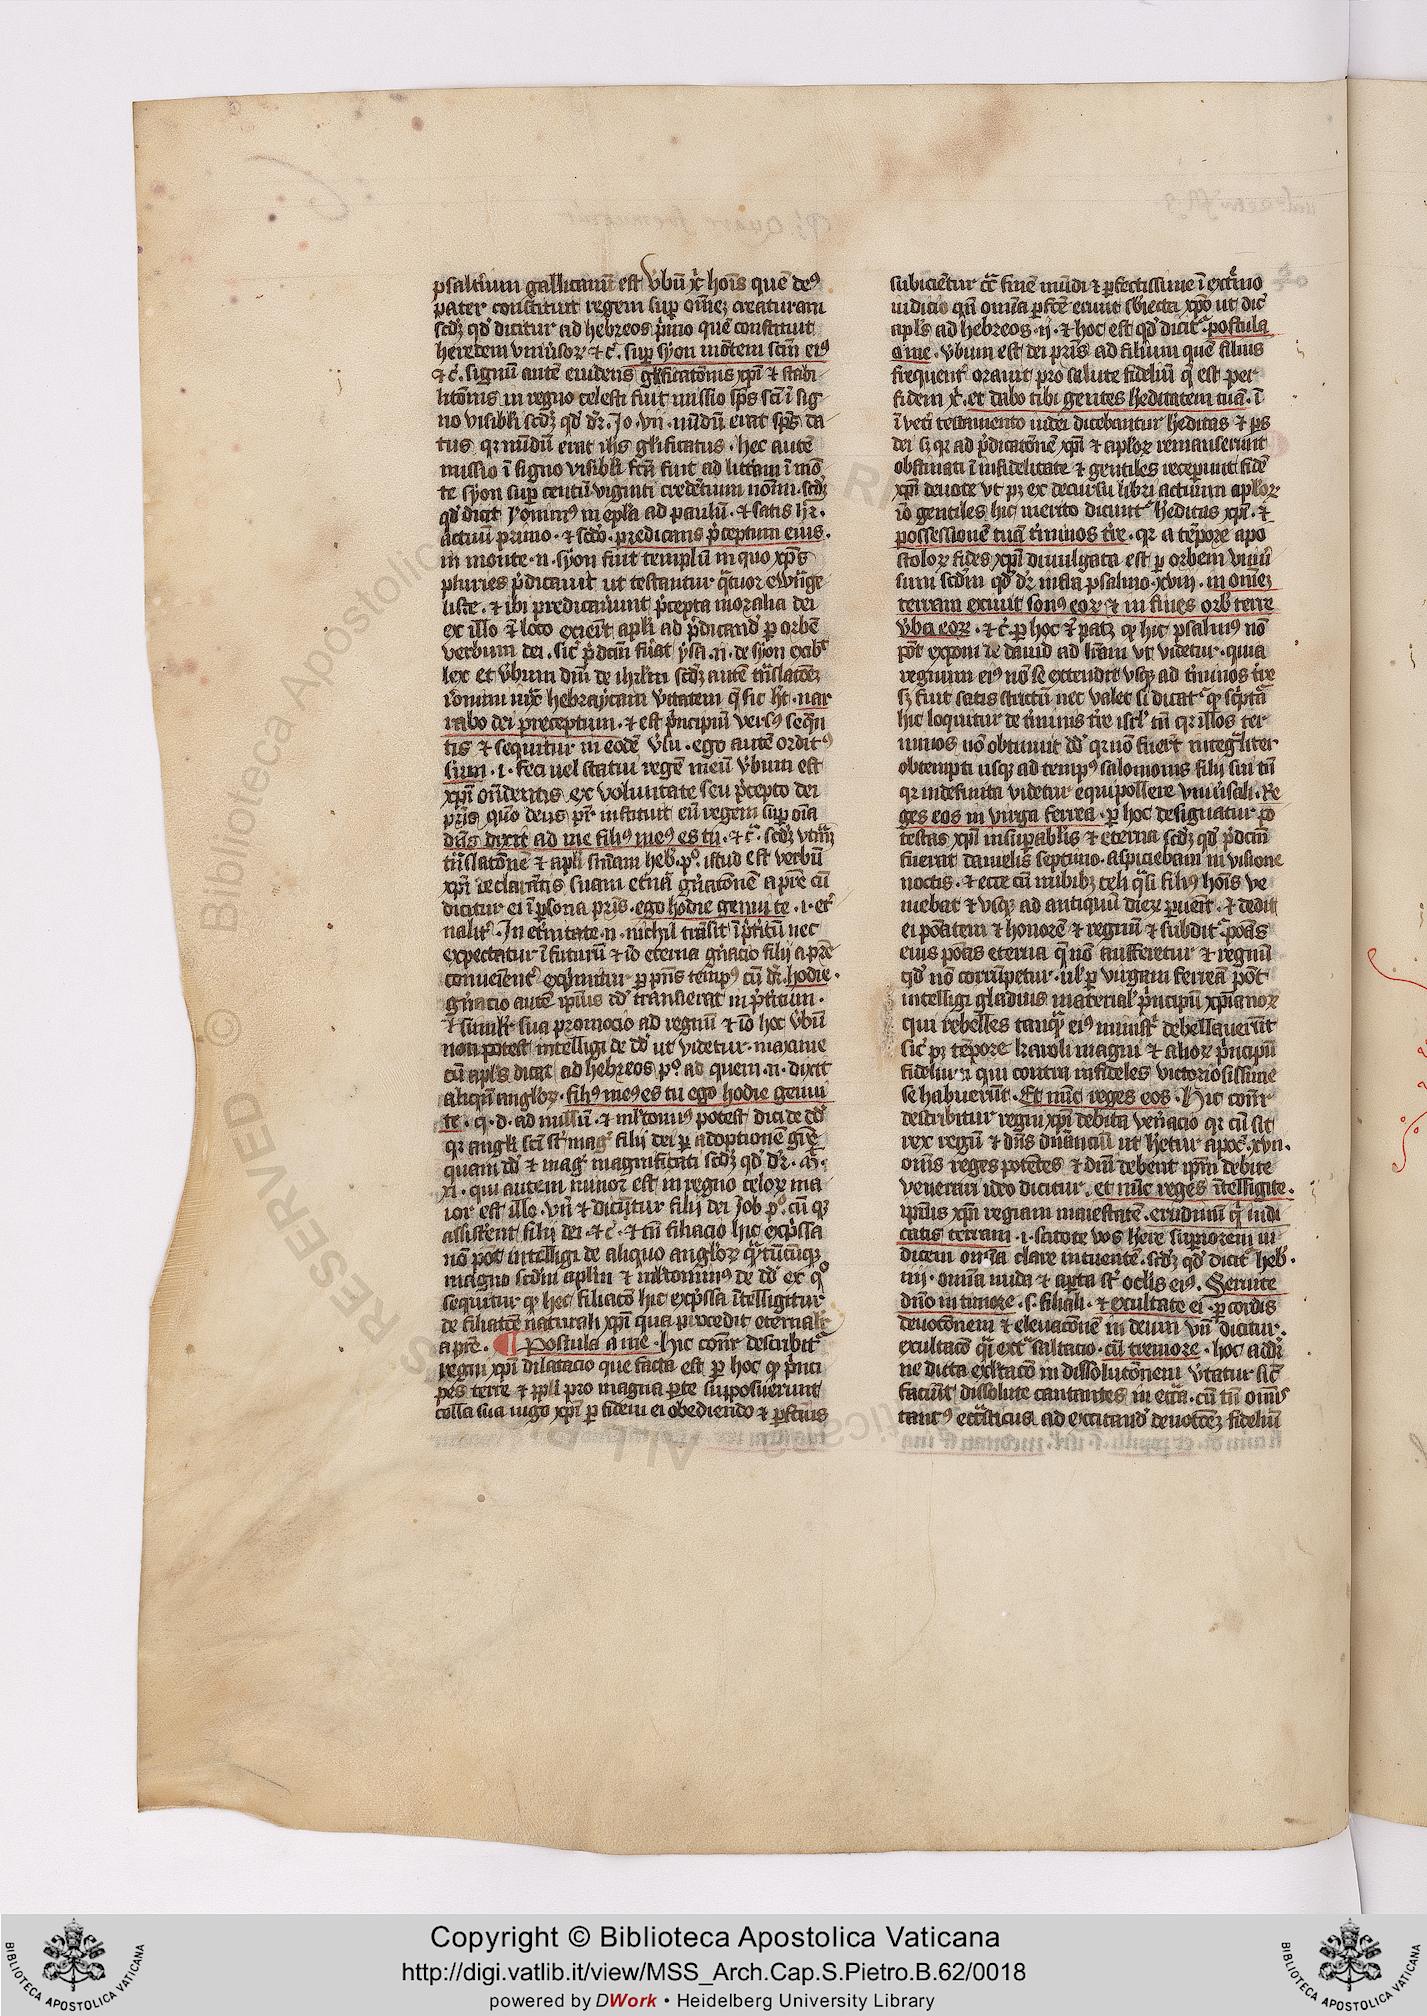 psalt'ium gallicanū est v̓bū xp̄i hoīs quē deꝰ
pater constituit regem sup̱ om̄eꝫ creaturam
scd'ꝫ qd' dicitur ad hebreos p̓mo quē constituit
heredem vniu'soꝝ ⁊ c̄. sup̱ syon mōtem scm̄ eiꝰ
⁊ c̄. signū autē euidens gl'ificatōnis xp̄i ⁊ stabi
litōnis in regno celesti fuit missio sp̄s sc̄i ī sig
no visibili scd'ꝫ qd' d'r. Jo. vii. nōdū erat sp̄s da
tus qr nōdū erat ih̄s gl'ificatus. hec autē
missio ī signo visibili fc̄a fuit ad litt'am ī mō
te syon sup̱ centū viginti credētium noīm. scd'ꝫ
qd' dicit Ieronimꝰ in ep̄la ad paulū. ⁊ satis h'r.
actuū primo. ⁊ scd'o. predicans p̓ceptum eius.
in monte. n. syon fuit templū in quo xp̄s
pluries p̓dicauit ut testantur q̓tuor ewāge
liste. ⁊ ibi predicauerunt p̓cepta moralia dei
ex illo ē loco exierūt ap̄li ad p̓dicand' p̱ orbē
verbum dei. sic' p̓dcm̄ fu'at ysa. ii. de syon exibit
lex et v̓bum dn̄i de ihrl'm scd'ꝫ autē trāslacōeꝫ
Ieronimi iuxª hebraycam v'itatem q̄ sic h't. nar
rabo dei preceptum. ⁊ est p̓ncipiū versꝰ seqūn
tis ⁊ sequitur in eodē v'su. ego autē orditꝰ
sum. i. feci uel statui regē meū v̓bum est
xp̄i on̄dentis ex voluntate seu p̓cepto dei
pr̄is quō deus pr̄ instituit eū regem sup̱ oīa
dn̄s dixit ad me filiꝰ meꝰ es tu. ⁊ c̄. scd'ꝫ vtrāqꝫ
trāslatōnē ⁊ apl'i sn̄iam heb'. pº. istud est verbū
xp̄i declarātis suam et'nā gn̄atōnē a pr̄e cū
dicitur ei ī p̱sona pr̄is. ego hodie genui te. i. et'
nalit'. In et'nitate. n. nichil trāsit ī p̓t'itū nec
expectatur ī futurū ⁊ iō eterna gn̄acio filij a pr̄e
conueniēnt' exp̓mitur p̱ pn̄s tempꝰ cū d'r. hodie.
gn̄acio autē ip̄ius dd' transierat in p̓t'itum.
⁊ similit' sua promocio ad regnū ⁊ iō hoc v̓bū
non potest intelligi de dd' ut videtur. maxime
cū apl's dicat ad hebreos pº. ad quem. n. dixit
aliqn̄ angl'oꝝ. filiꝰ meꝰ es tu ego hodie genui
te. q. d. ad nullū. ⁊ ml'tominꝰ potest dici de dd'
qr angl'i sc̄i st' mag' filij dei p̱ adoptionē gr̄e
quam dd' ⁊ mag' magnificati scd'ꝫ qd' d'r. M̄.
xi. qui autem minor est in regno celoꝝ ma
ior est illo. vn̄ ⁊ dicūntur filij dei Job pº. cū qꝫ
assisterent filij dei. ⁊ c̄. ⁊ tn̄ filiacio hic exp̓ssa
nō pōt intelligi de aliquo angl'oꝝ q̓tūcūqꝫ
magno scd'm apl'm ⁊ ml'tominꝰ de dd' ex qº
sequitur qꝫ hec filiacio hic exp̓ssa ītelligitur
de filiatōe naturali xp̄i qua procedit eternalit'
a pr̄e. ¶ Postula a me. hic con̄r describit'
regni xp̄i dilatacio que facta est p̱ hoc qꝫ p̓nci
pes terre ⁊ ppl'i pro magna p̱te supposuerunt
colla sua iugo xp̄i p̱ fidem ei obediendo ⁊ p̱fectius
subicientur circª finē mūdi ⁊ p̱fectissime ī extremo
iudicio qn̄ omnia p̱fcē erunt sb̄iecta xp̄o ut dic̄
apl's ad hebreos. ii. ⁊ hoc est qd' dicit'. postula
a me. v̓bum est dei pr̄is ad filium quē filius
frequent' orauit pro salute fideliū q̄ est per
fidem xp̄i. et dabo tibi gentes h'editatem tuā. ī
ī vet'i testamento iudei dicebantur h'editas ⁊ p̱s
dei sꝫ qr ad p̓dicatōnē xp̄i ⁊ apl'oꝝ remanserunt
obstinati ī infidelitate ⁊ gentiles recep̱unt fidē
xp̄i deuote vt pꝫ ex decursu libri actuum apl'oꝝ
iō gentiles hic merito dicunt' h'editas xp̄i. ⁊
possessionē tuā t'minos t're. qr a tēpore apo
stoloꝝ fides xp̄i diuulgata est p̱ orbem vniu'
sum scd'm qd' d'r infra psalmo. xviii. in om̄eꝫ
terram exiuit sonꝰ eoꝝ ⁊ in fines orb' terre
v̓ba eoꝝ. ⁊ c̄. p̱ hoc ē patꝫ qꝫ hic psalmꝰ nō
pōt exponi de dauid ad litt'am vt videtur. quia
regnum eiꝰ nō se extendit vsqꝫ ad t'minos t're
sꝫ fuit satis strictū nec valet si dicat' qꝫ sc̓ptª
hic loquitur de t'minis t're isrl' tū qr illos ter
minos nō obtinuit dd' qr nō fuer̄t integ̓liter
obtempti usqꝫ ad tempꝰ salomonis filij sui tū
qr indefinita videtur equipollere vniu'sali. Re
ges eos in virga ferrea. p̱ hoc designatur po
testas xp̄i insup̱abilis ⁊ eterna scd'ꝫ qd' p̓dcm̄
fuerat danielis septimo. aspiciebam in visione
noctis. ⁊ ecce cū nubibꝫ celi q̓si filiꝰ hoīs ve
niebat ⁊ vsqꝫ ad antiquū dieꝝ p̱uenit. ⁊ dedit
ei p̄oatem ⁊ honorē ⁊ regnū ⁊ subdit'. p̄oas
eius p̄oas eterna q̄ nō aufferetur ⁊ regnū
qd' nō corrūpetur. ul' p̱ virgam ferreā pōt
intelligi gladius material' p̓ncipū xp̄ianoꝝ
qui rebelles tanqª eiꝰ minist' debellauerūt
sic' pꝫ tēpore karoli magni ⁊ alioꝝ p̓ncipū
fideliū qui contra infideles victoriosissime
se habuerūt. Et nūc reges eos. Hic con̄r
describitur regni xp̄i debita ven'acio qr cū sit
rex regū ⁊ dn̄s dn̄anciū ut h'etur apoc̄. xvii.
om̄s reges potētes ⁊ dn̄i debent ip̄m debite
venerari ideo dicitur. et nūc reges ītelligite.
ip̄ius xp̄i regiam maiestatē. erudimī q̄ iudi
catis terram. i. scitote vos h'ere sup̱iorem iu
dicem omnia clare intuentē. scd'ꝫ qd' dicit' heb'.
iiii. omīa nuda ⁊ ap̱ta st' oclis eiꝰ. Seruite
dn̄o in timore. s. filiali. ⁊ exultate ei. p̱ cordis
deuotōnem ⁊ eleuatōnē in deum vn̄ dicitur.
exultacō q̓i extª saltacio. cū tremore. hoc addit'
ne dicta exl'tacō in dissolutōnem v'tatur sic'
faciūt dissolute cantantes in ecc'a. cū tn̄ om̄is
cantꝰ ecc'iasticus ad excitand' deuotōeꝫ fideliū
Copyright © Biblioteca Apostolica Vaticana
http://digi.vatlib.it/view/MSS_Arch.Cap.S.Pietro.B.62/0018
powered by DWork • Heidelberg University Library